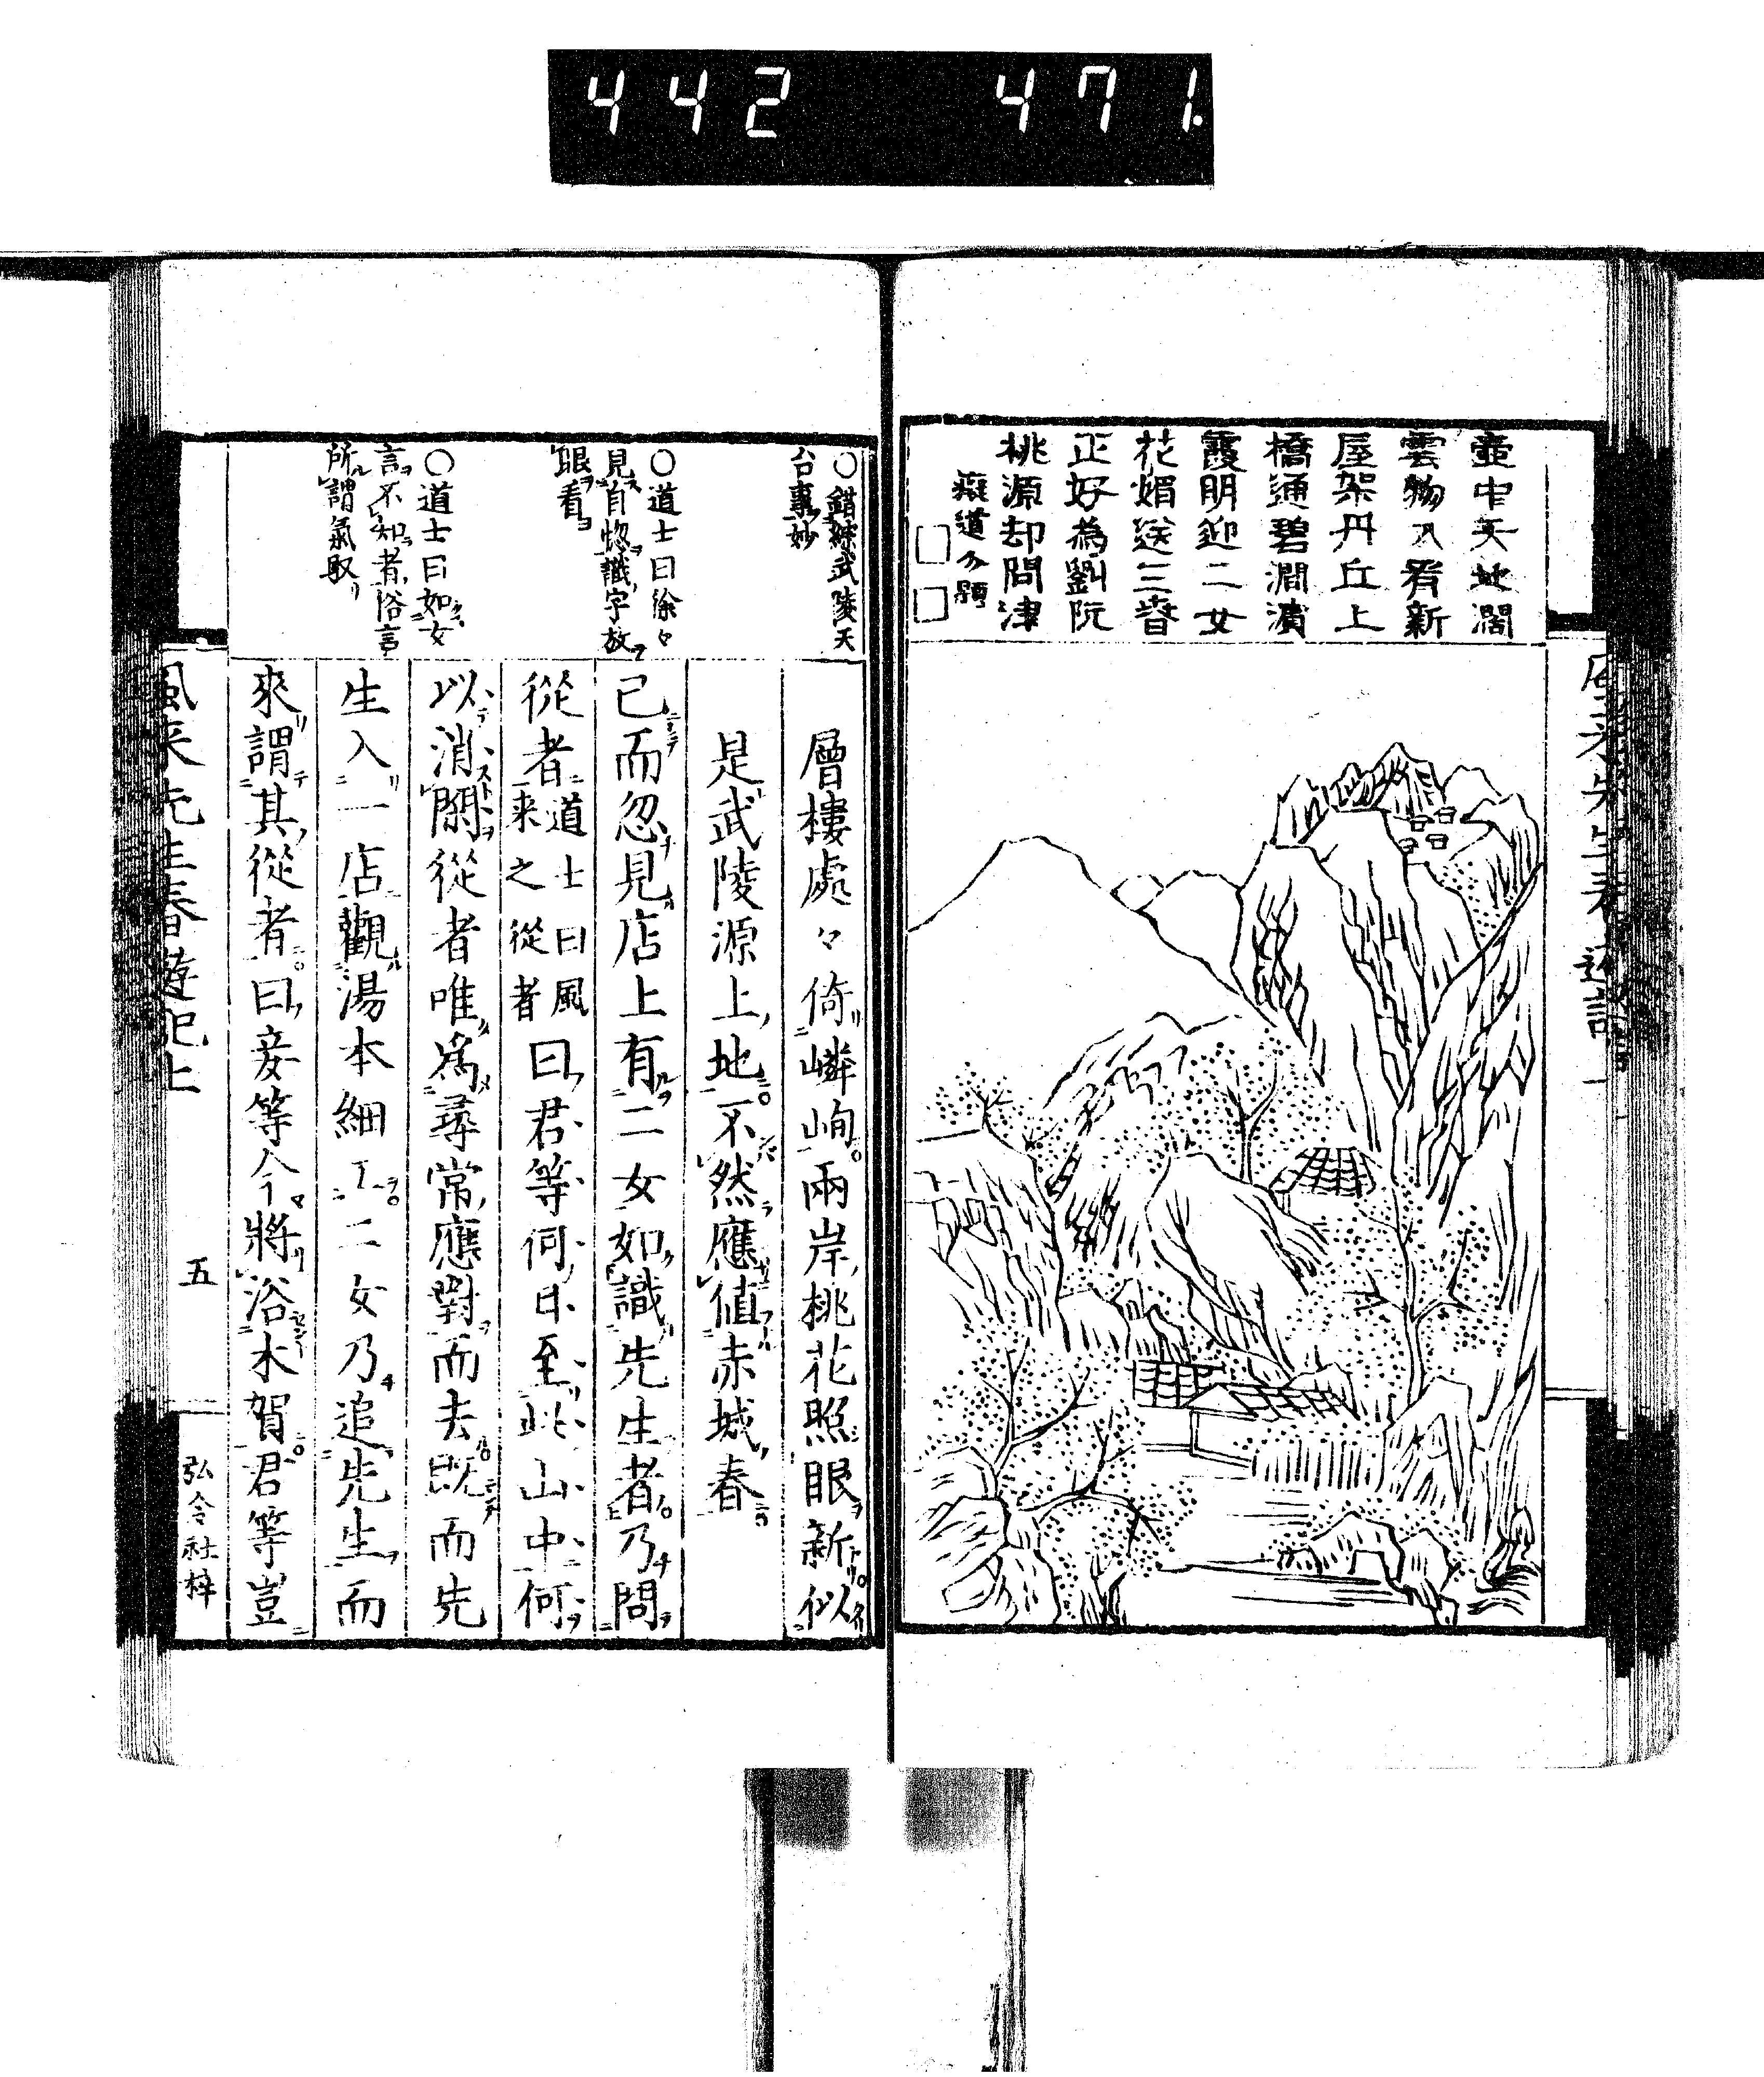 442 471.
壺中天地濶
雲物入看新
屋架丹丘上
橋通碧澗濱
霞明迎二女
花媚送三春
正好為劉阮
桃源却問津
癡道人題
○錯綜武陵天
台事妙
○道士曰徐々
見自惚識字放
眼看
○道士曰如女
言不知者俗言
所謂氣取
層樓處々倚嶙峋兩岸桃花照眼新似
是武陵源上地不然應値赤城春
已而忽見店上有二女如識先生者乃問
從者道士曰風来之從者曰君等何日至此山中何
以消閑從者唯為尋常應對而去既而先
生入一店觀湯本細工二女乃追先生而
來謂其從者曰妾等今將浴木賀君等豈
風来先生春遊記上
五
弘令社梓